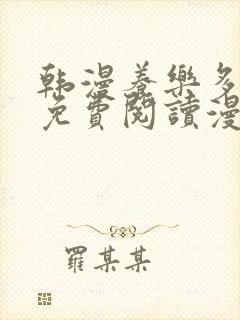 韩漫養樂多
免費閱讀漫
羅某某